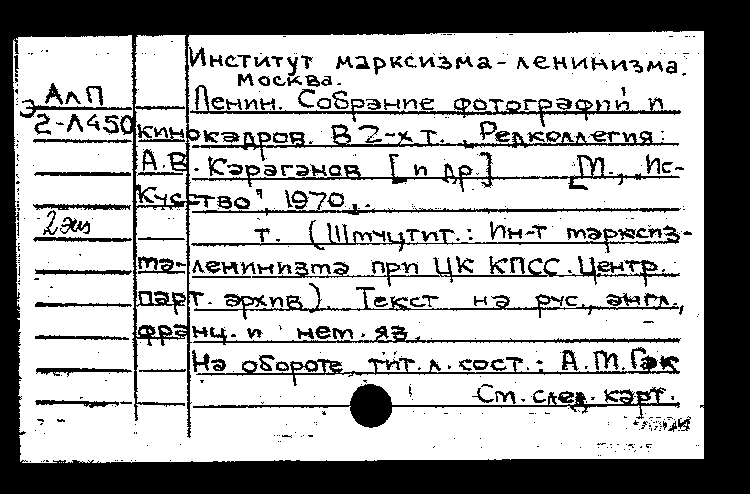 Институт марксизма-ленинизма.
Москва.
АлП
Ленин. Собрание фотографий и
2-Л450 кинокадров. В 2-х т. Редколлегия:
А.В. Караганов [и др.] [М., „Ис-
кусство", 1970.
2 экз
т. (Шмуцтит.: Ин-т марксиз-
ма-ленинизма при ЦК КПСС. Центр.
парт. архив). Текст на рус., англ.,
франц. и нем. яз.
На обороте тит. л. сост.: А.М. Гак
См. след. карт.